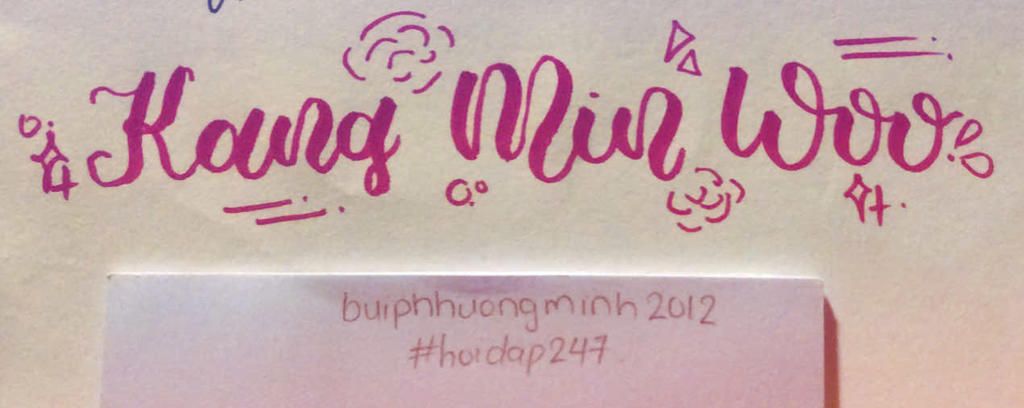 Kang Min Woo
buiphhuongminh2012
#hoidap247